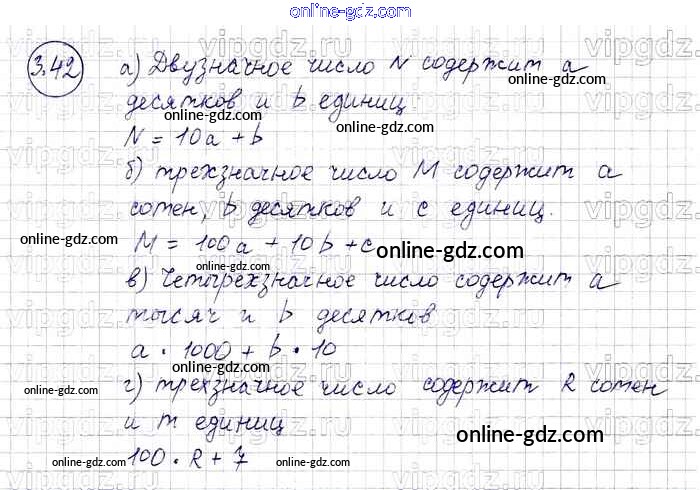 online-gdz.com
3.42 а) Двузначное число N содержит а
десятков и b единиц
N = 10a + b
б) трехзначное число М содержит а
сотен, b десятков и с единиц.
M = 100a + 10b + c
в) Четырехзначное число содержит а
тысяч и b десятков
a · 1000 + b · 10
г) трехзначное число содержит R сотен
и m единиц
100 · R + 7
online-gdz.com
online-gdz.com
online-gdz.com
online-gdz.com
online-gdz.com
online-gdz.com
online-gdz.com
online-gdz.com
online-gdz.com
online-gdz.com
online-gdz.com
online-gdz.com
online-gdz.com